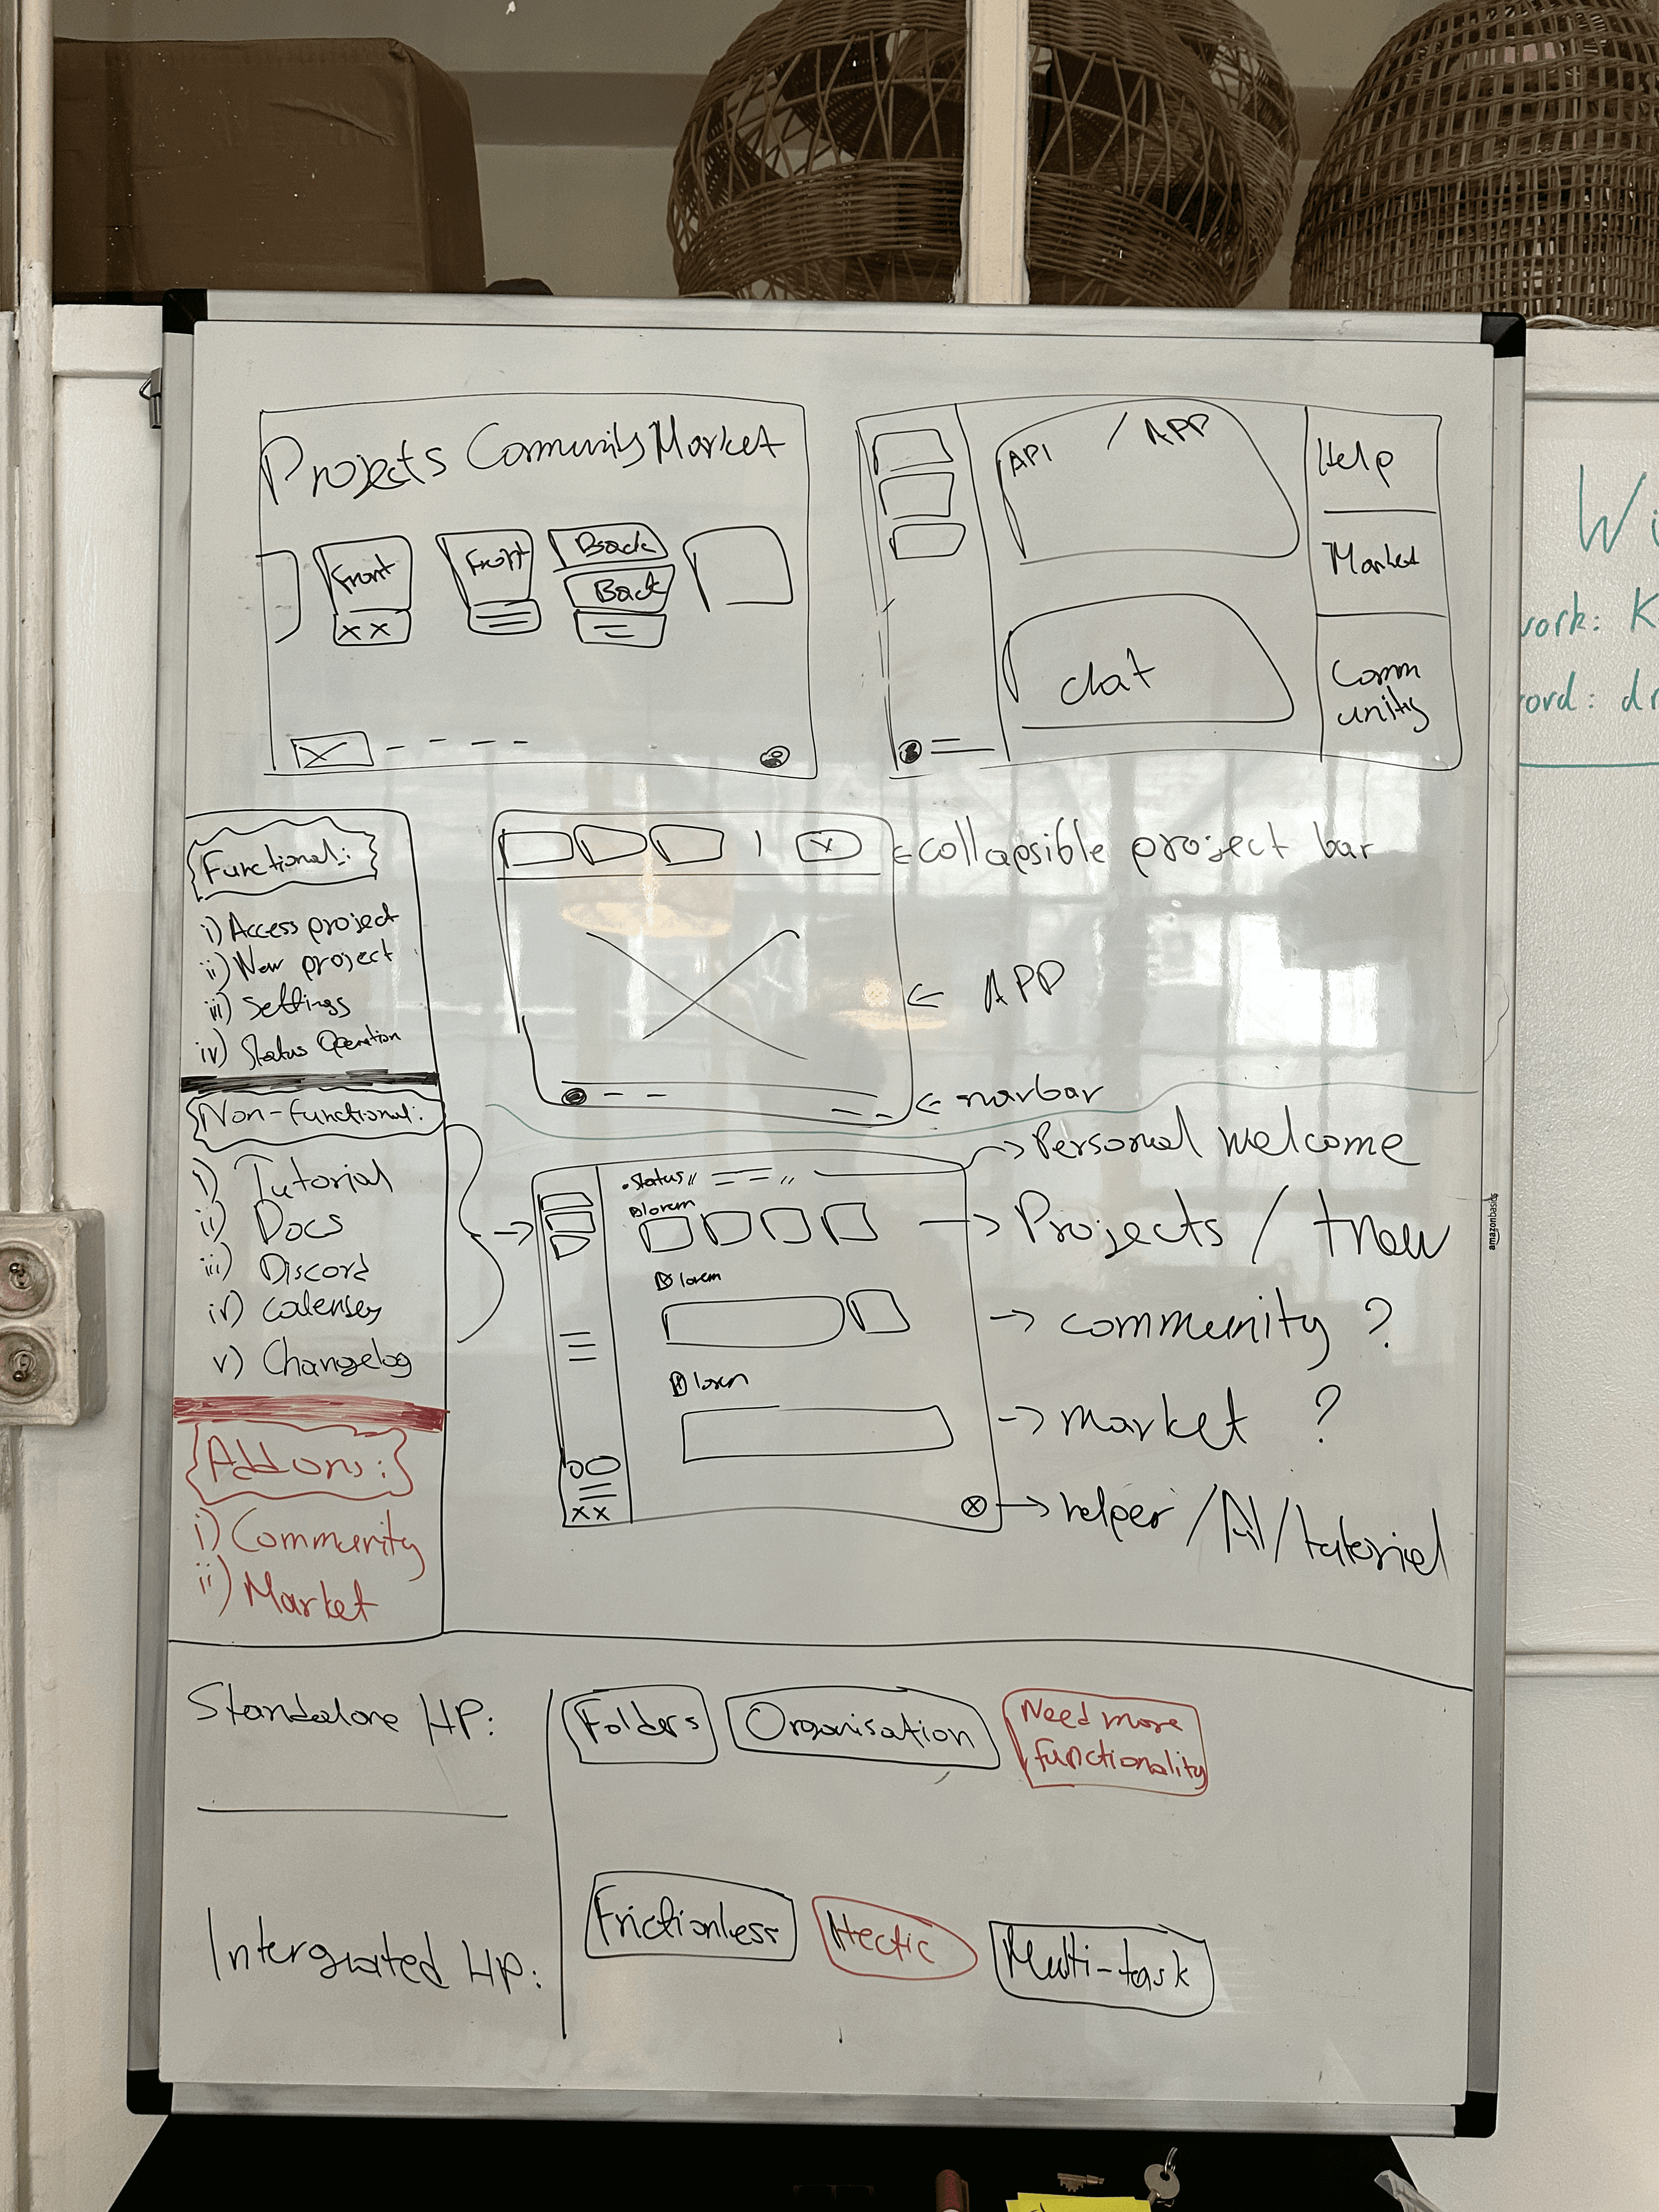 Projects Community Market
Front
Front
Back
Back
X X
API / APP
chat
Help
Market
Comm
unity
Wi
work: K
ord: dr
Functional:
i) Access project
ii) New project
iii) Settings
iv) Status Operation
Non-functional:
i) Tutorial
ii) Docs
iii) Discord
v) Changelog
Addons:
i) Community
ii) Market
collapsible project bar
APP
navbar
Status
lorem
lorem
lorem
X X
Personal welcome
Projects / + new
community ?
market ?
helper / AI / tutorial
amazonbasics
Standalone HP:
Folders
Organisation
Need more
functionality
Intergrated HP:
Frictionless
Hectic
Multi-task